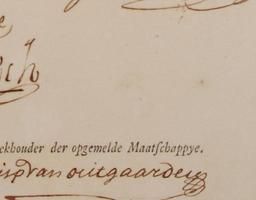 ch
ekhouder der opgemelde Maatſchappye.
van outgaarden